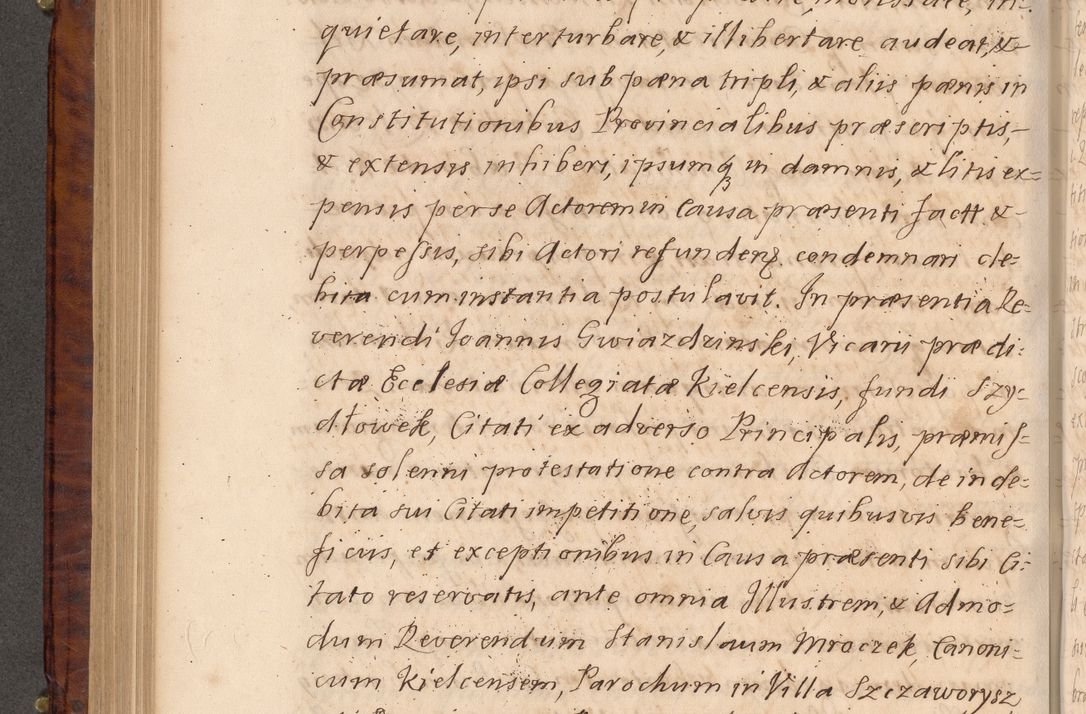 quietare, interturbare, & illibertare audeat, &
præsumat, ipsi sub pæna tripli, & aliis pænis in
Constitutionibus Provincialibus præscriptis,
& extensis inhiberi, ipsumq₃ in damnis, & litis ex=
pensis per se Actorem in Causa præsenti factt &
perpessis, sibi Actori refundenz condemnari de=
bita cum instantia postulavit. In præsentia Re=
verendi Joannis Gwiazdzinski, Vicarii prædi=
ctæ Ecclesiæ Collegiatæ Kielcensis, fundi Szy=
dłowek, Citati ex adverso Principalis, præmis=
sa solenni protestatione contra Actorem, de inde=
bita sui Citati impetitione, salvis quibusvis bene=
ficiis, et exceptionibus in Causa præsenti sibi Ci=
tato reservatis, ante omnia Illustrem, & Admo=
dum Reverendum Stanislaum Mroczek, Canoni=
cum Kielcensem, Parochum in Villa Szczaworysz